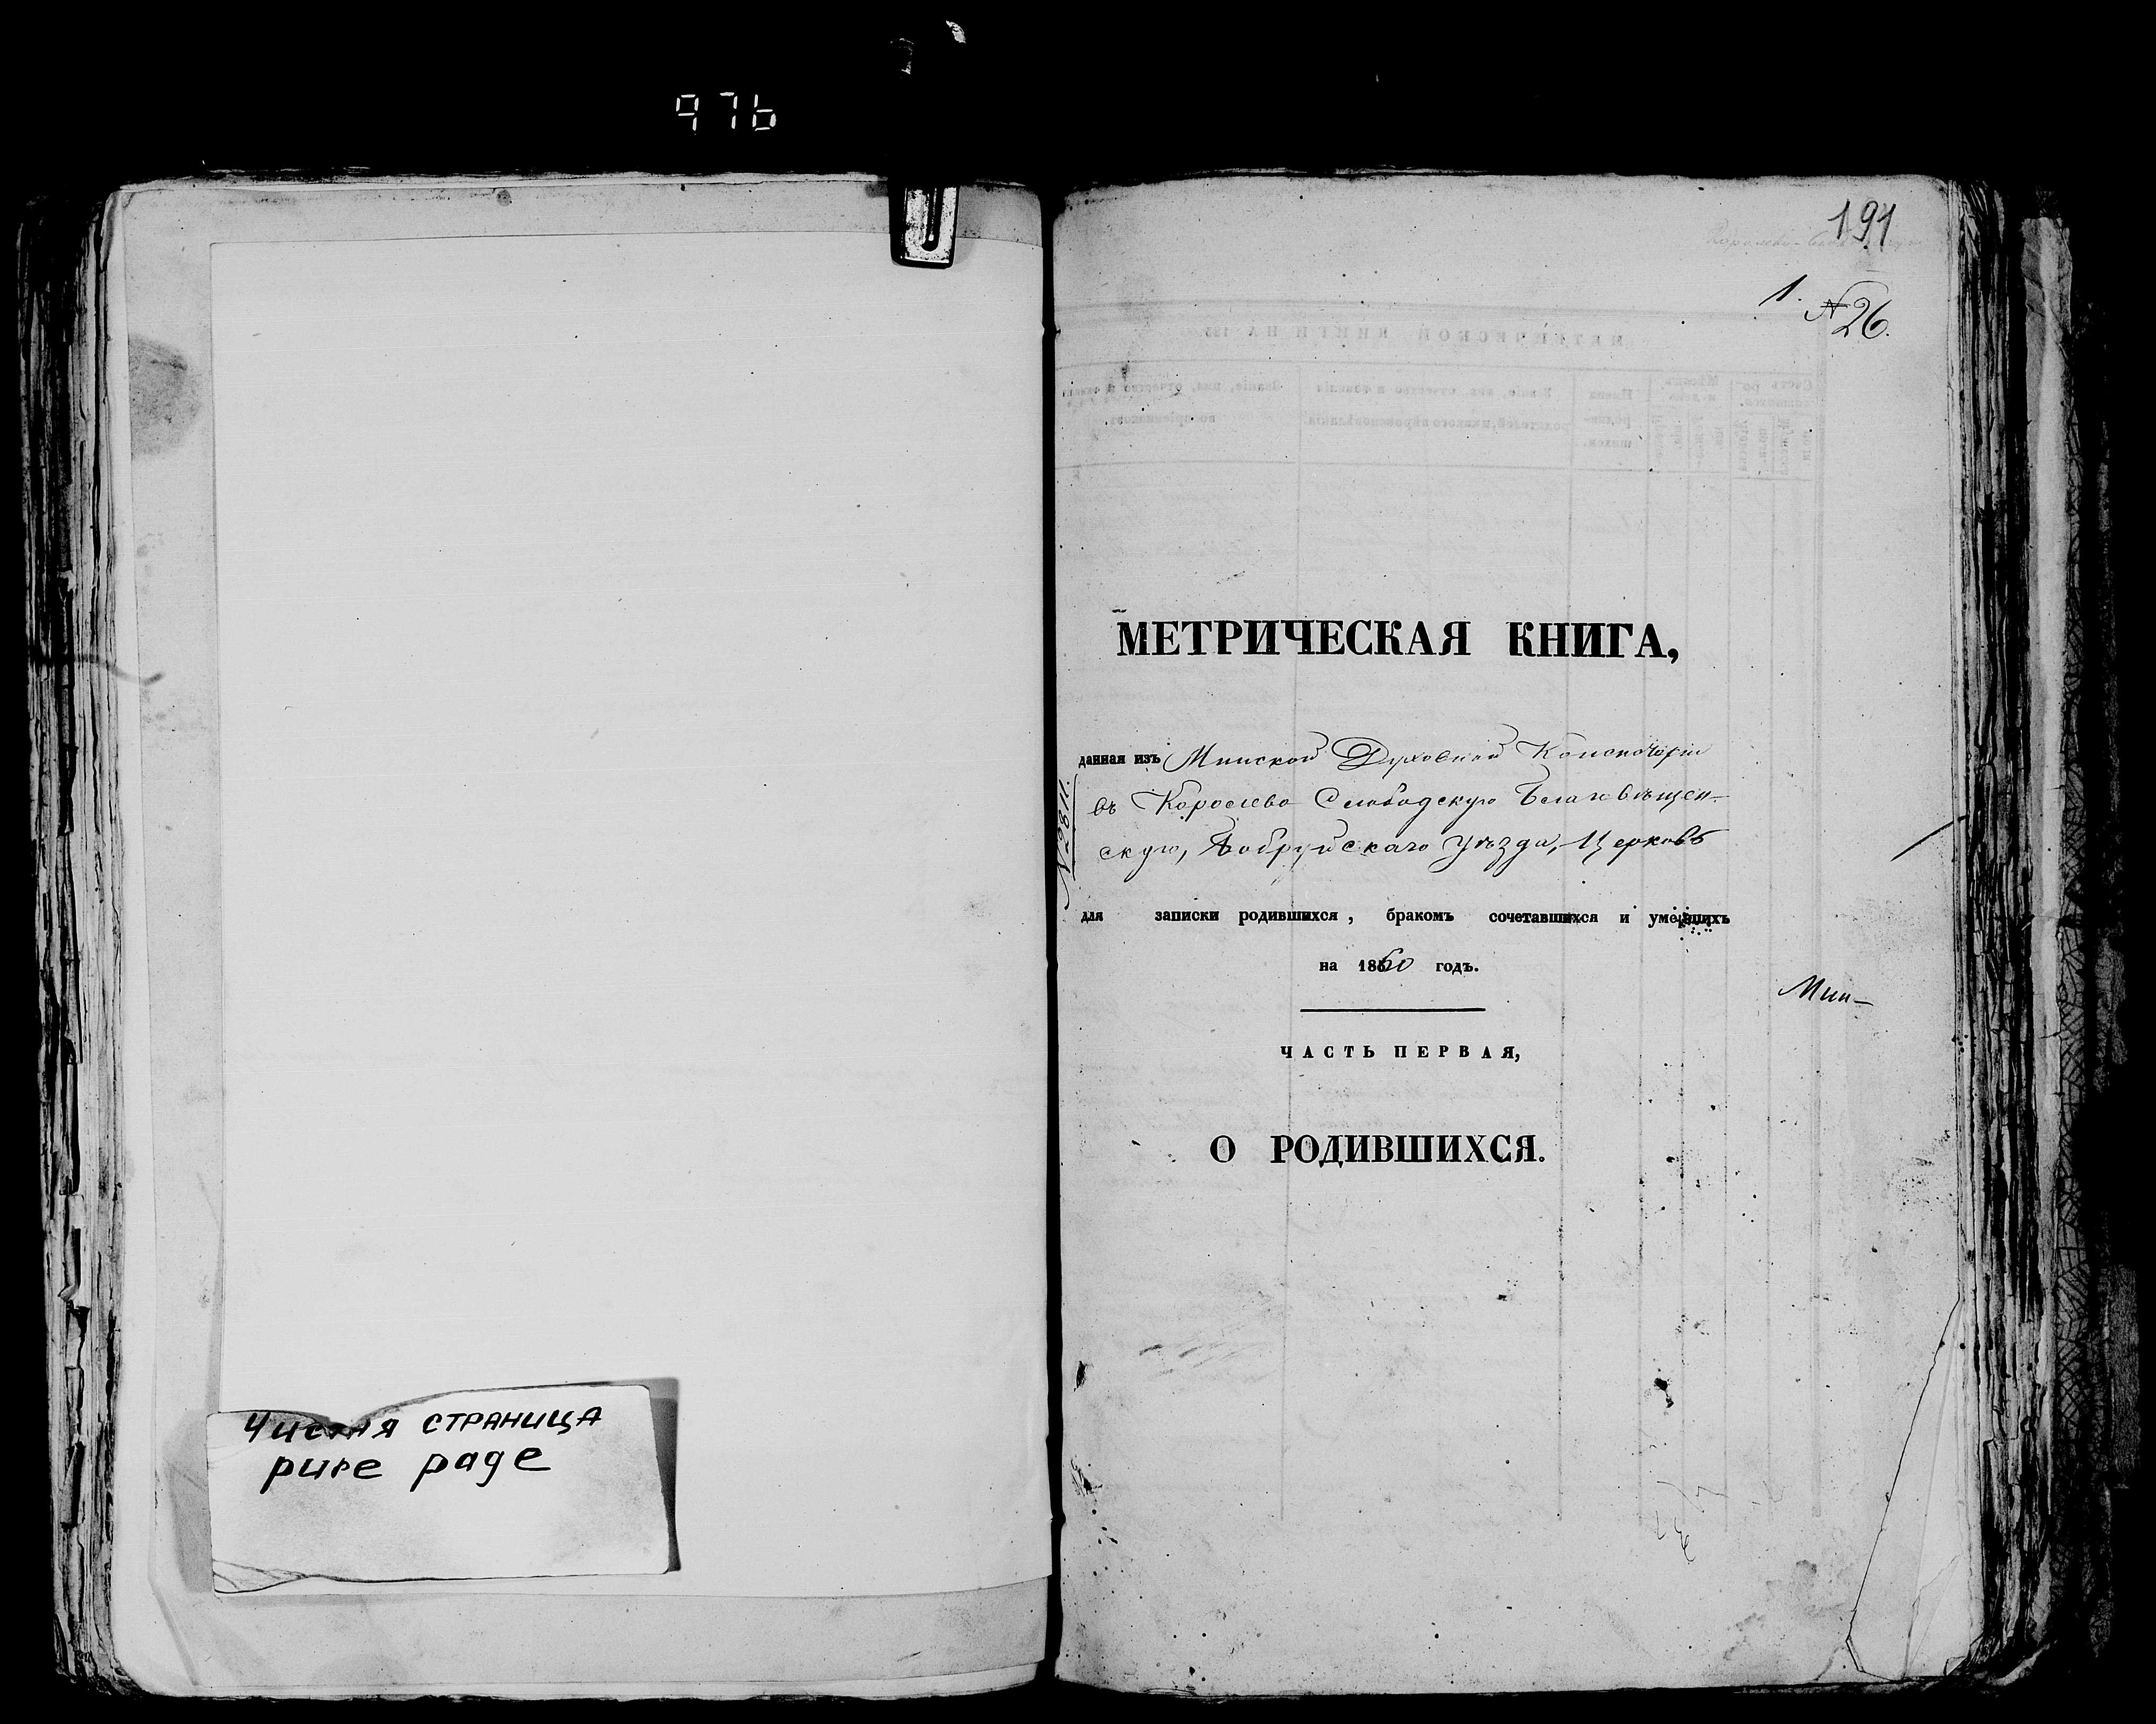 976
Чистая страница
pure page
191
1. №26.
МЕТРИЧЕСКАЯ КНИГА,
данная изъ Минской Духовной Консисторіи
въ Королево Слободскую Благовѣщен-
скую, Бобруйскаго Уѣзда, Церковь
№2811.
для записки родившихся, бракомъ сочетавшихся и умершихъ
на 1860 годъ.
Мин-
ЧАСТЬ ПЕРВАЯ,
О РОДИВШИХСЯ.